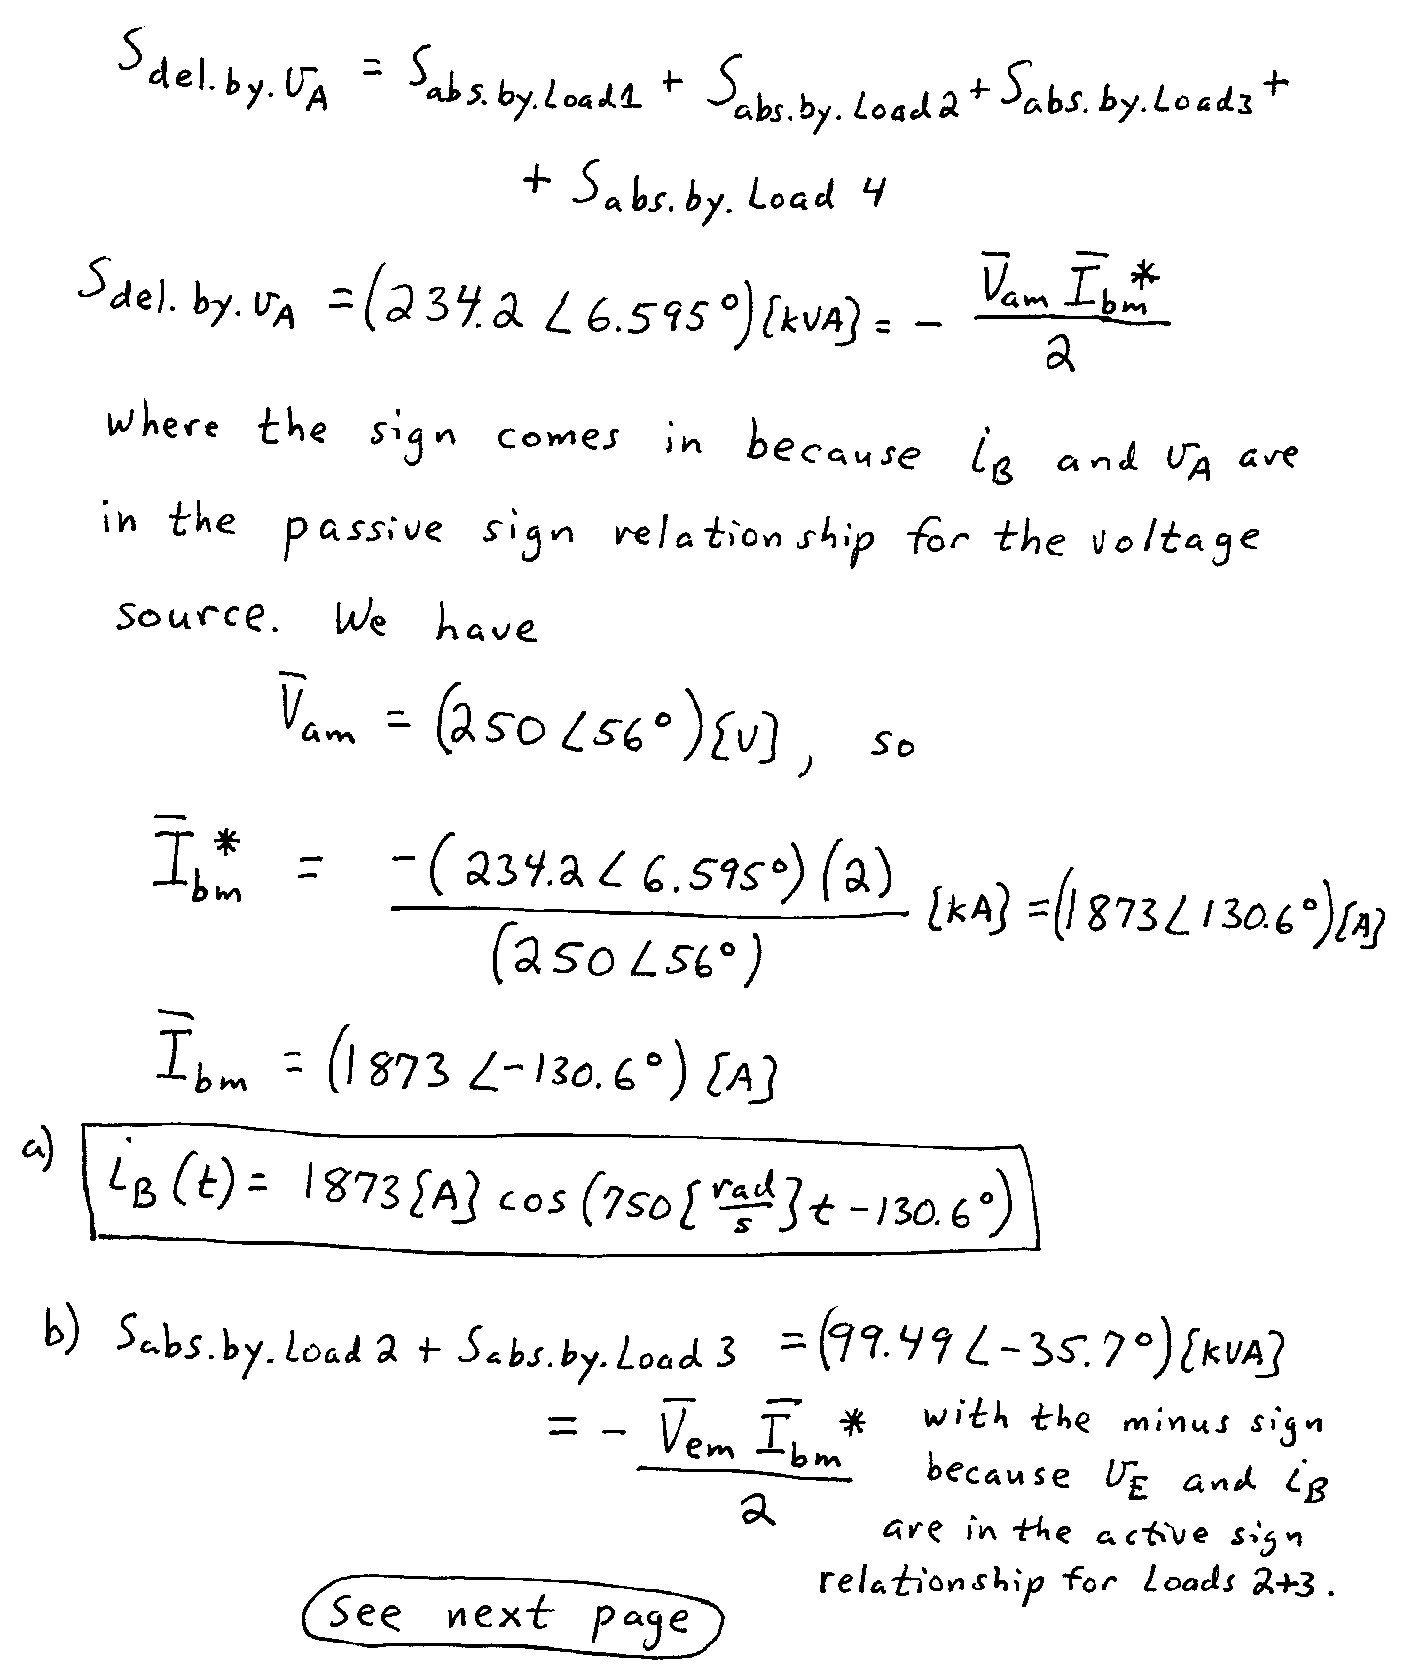 S del.by.vA = S abs.by.Load1 + S abs.by.Load2 + S abs.by.Load3 +
+ S abs.by.Load 4
S del.by.vA = (234.2 ∠6.595°)[kVA] = - V̄am Ībm* / 2
where the sign comes in because iB and vA are
in the passive sign relationship for the voltage
source. We have
V̄am = (250 ∠56°)[V], so
Ībm* = -(234.2 ∠ 6.595°)(2) / (250 ∠56°) [kA] = (1873 ∠130.6°)[A]
Ībm = (1873 ∠-130.6°) [A]
a) iB(t) = 1873[A] cos(750[rad/s]t - 130.6°)
b) S abs.by.Load 2 + S abs.by.Load 3 = (99.49 ∠-35.7°)[kVA]
= - V̄em Ībm* / 2 with the minus sign
because vE and iB
are in the active sign
relationship for Loads 2+3.
See next page